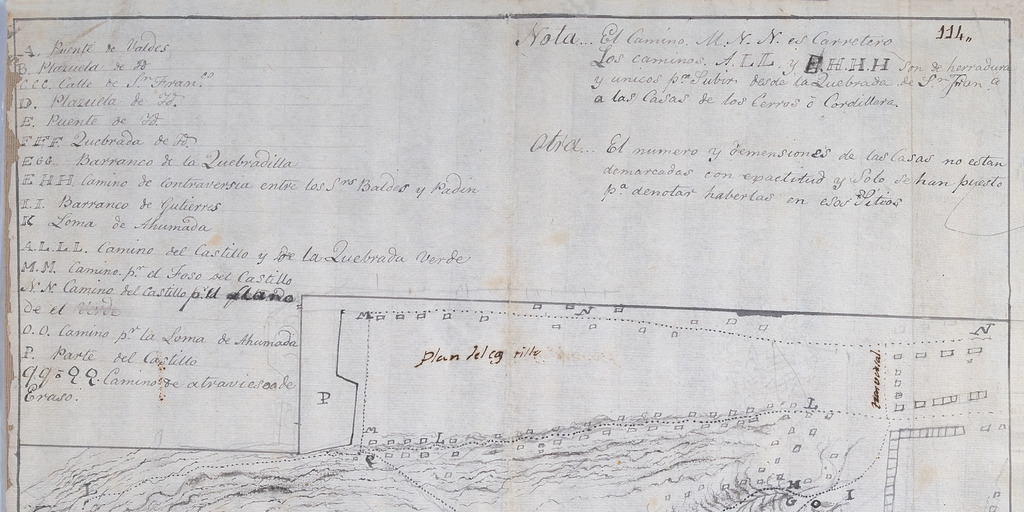 114,,
A. Puente de Valdes
B. Plazuela de Yd.
C.C.C. Calle de Sn. Franco.
D. Plazuela de Yd.
E. Puente de Yd.
F F F Quebrada de Yd.
E G G. Barranco de la Quebradilla
E H H. Camino de contraversia entre los Srs Baldes y Padin
I I. Barranco de Gutierres
K Loma de Ahumada
A.L.L.L. Camino del Castillo y de la Quebrada Verde
M.M. Camino pa. el Foso del Castillo
N.N. Camino del Castillo pa. el llano
de el
O.O. Camino pa. la Loma de Ahumada
P. Parte del Castillo
q q o Q Q. Camino de atravieso de
Eraso.
Nota... El Camino M. N. N. es Carretero
Los caminos A. L L. y E. H. H. H Son de herradura
y unicos pa. Subir desde la Quebrada de Sn. Franco
a las Casas de los Cerros ó Cordillera.
Otra... El numero y demensiones de las Casas no estan
demarcadas con exactitud y Solo se han puesto
pa. denotar haberlas en esos Sitios
M N N
P
M L L
L H G O I